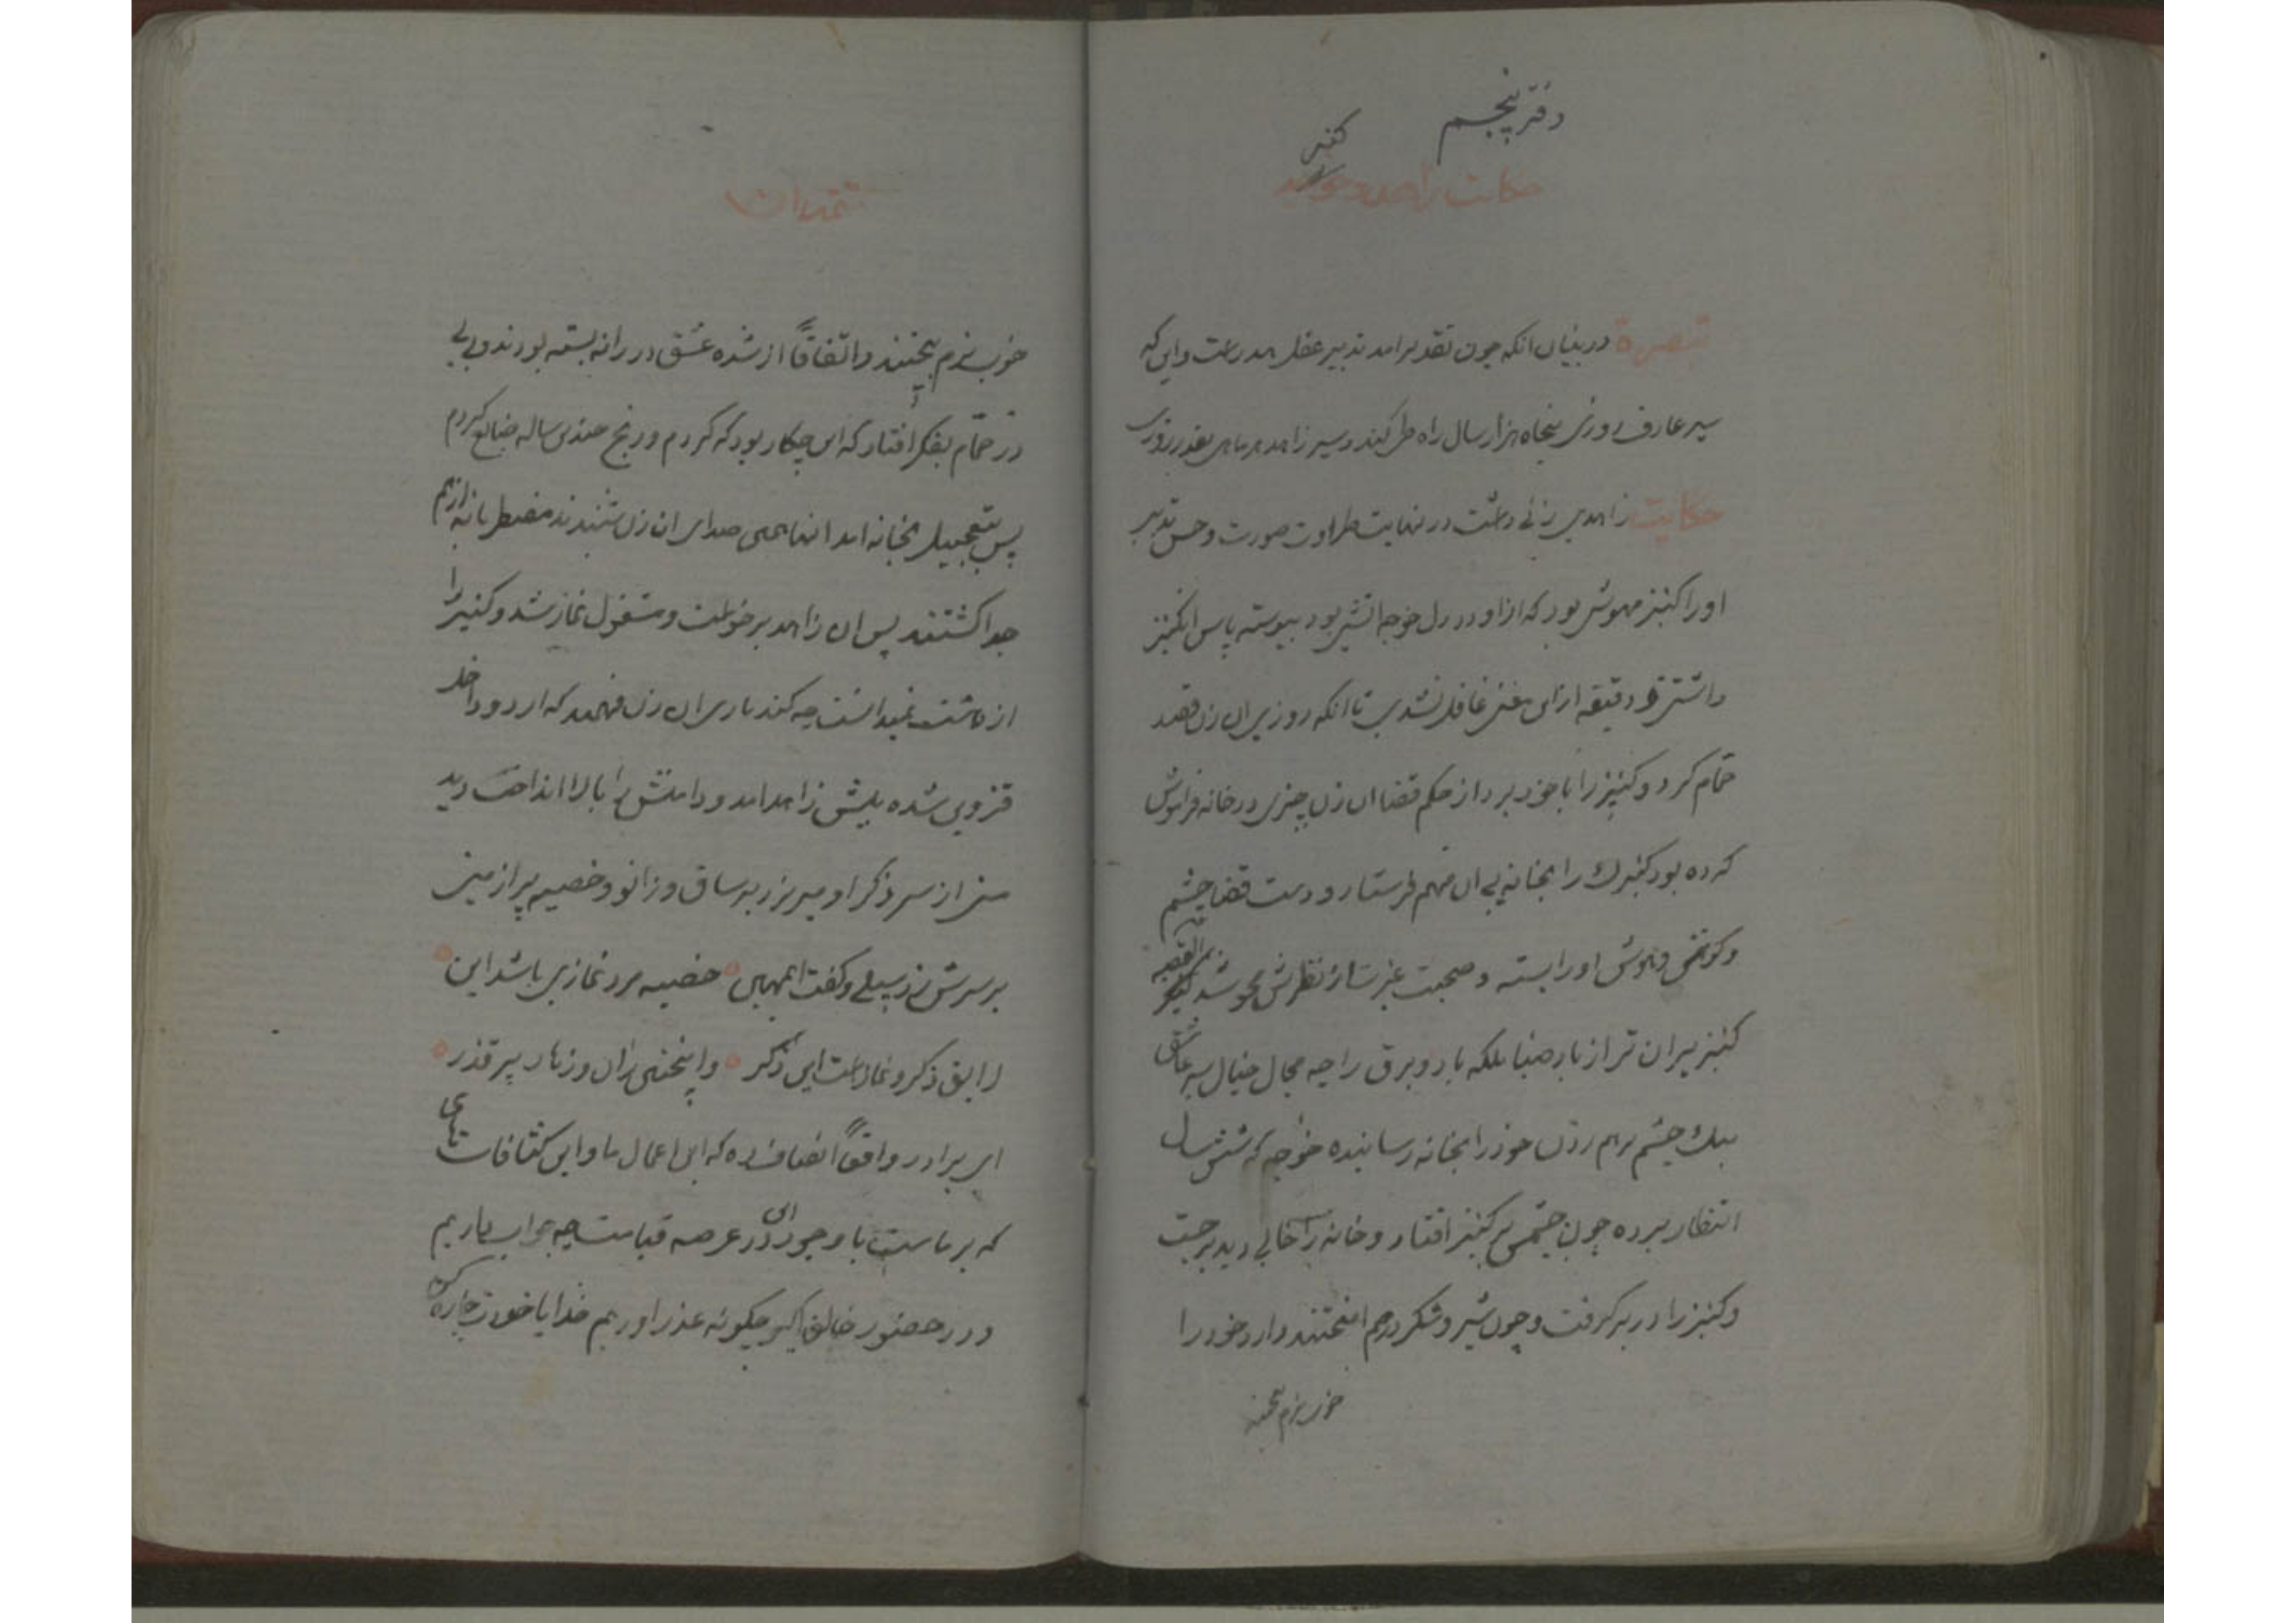 دفتر پنجم
حکایت زاهد و
کنیز
تبصرة در بیان انکه چون تقدیر امد تدبیر عقل هدر است و این که
سیر عارف روزی پنجاه هزار سال راه طی کند و سیر زاهد هر ماهی بقدر روزی
حکایت زاهدی زنی داشت در نهایت طراوت صورت و حسن تدبیر
او را کنیز مهوش بود که از او در دل خوجه اتشی بود پیوسته پاس انکنیز
داشتی و دقیقه از این معنی غافل نشدی تا انکه روزی ان زن قصد
حمام کرد و کنیز را با خود برد از حکم قضا ان زن چیزی در خانه فراموش
کرده بود کنیزک را بخانه پی ان مهم فرستاد و دست قضا چشم
و گوش و هوش او را بسته و صحبت غیرت از نظرش محو شد القصه
کنیز پران تر از باد صبا بلکه باد و برق را چه مجال خیال سیر عاشق
بیک چشم برهم زدن خود را بخانه رسانیده خوجه که شش سال
انتظار برده چون چشمش بر کنیز افتاد و خانه را خالی دید برجست
و کنیز را در بر گرفت و چون شیر و شکر درهم امیختند وارد خود را
خوب بزم پختند
تتمه ان
خوب بزم پختند و اتفاقا از شده عشق در را نه بسته بودند و بی بی
در حمام بفکر افتاد که این چکار بود که کردم و رنج چندین ساله ضایع کردم
پس بتعجیل بخانه امد انها همی صدای ان زن شنیدند مضطربانه از هم
جدا گشتند پس ان زاهد برخواست و مشغول نماز شد و کنیز را
از ماشت نمیدانست چه کند باری ان زن فهمید که از در داخل
قزوین شده پیش زاهد امد و دامنش را بالا انداخت دید
منی از سر ذکر او میریزد به ساق و زانو و خصیه پر از منی
بر سرش زد سیلی و گفت ای مهین خصیه مرد نمازی باشد این
لایق ذکر و نماز است این ذکر واینچنین ران و زهار پر قذر
ای برادر واقعا انصاف ده که این اعمال ما و این کثافات
که بر ماست با وجود این در عرصه قیامت چه جواب بیاریم
و در حضور خالق اکبر چگونه عذر اوریم خدایا خودت چاره کن